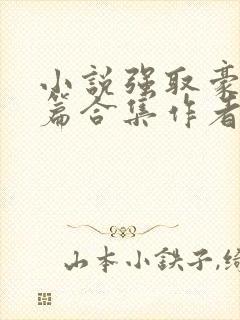 小說强取豪
篇合集作者
山本小鉄子,绮